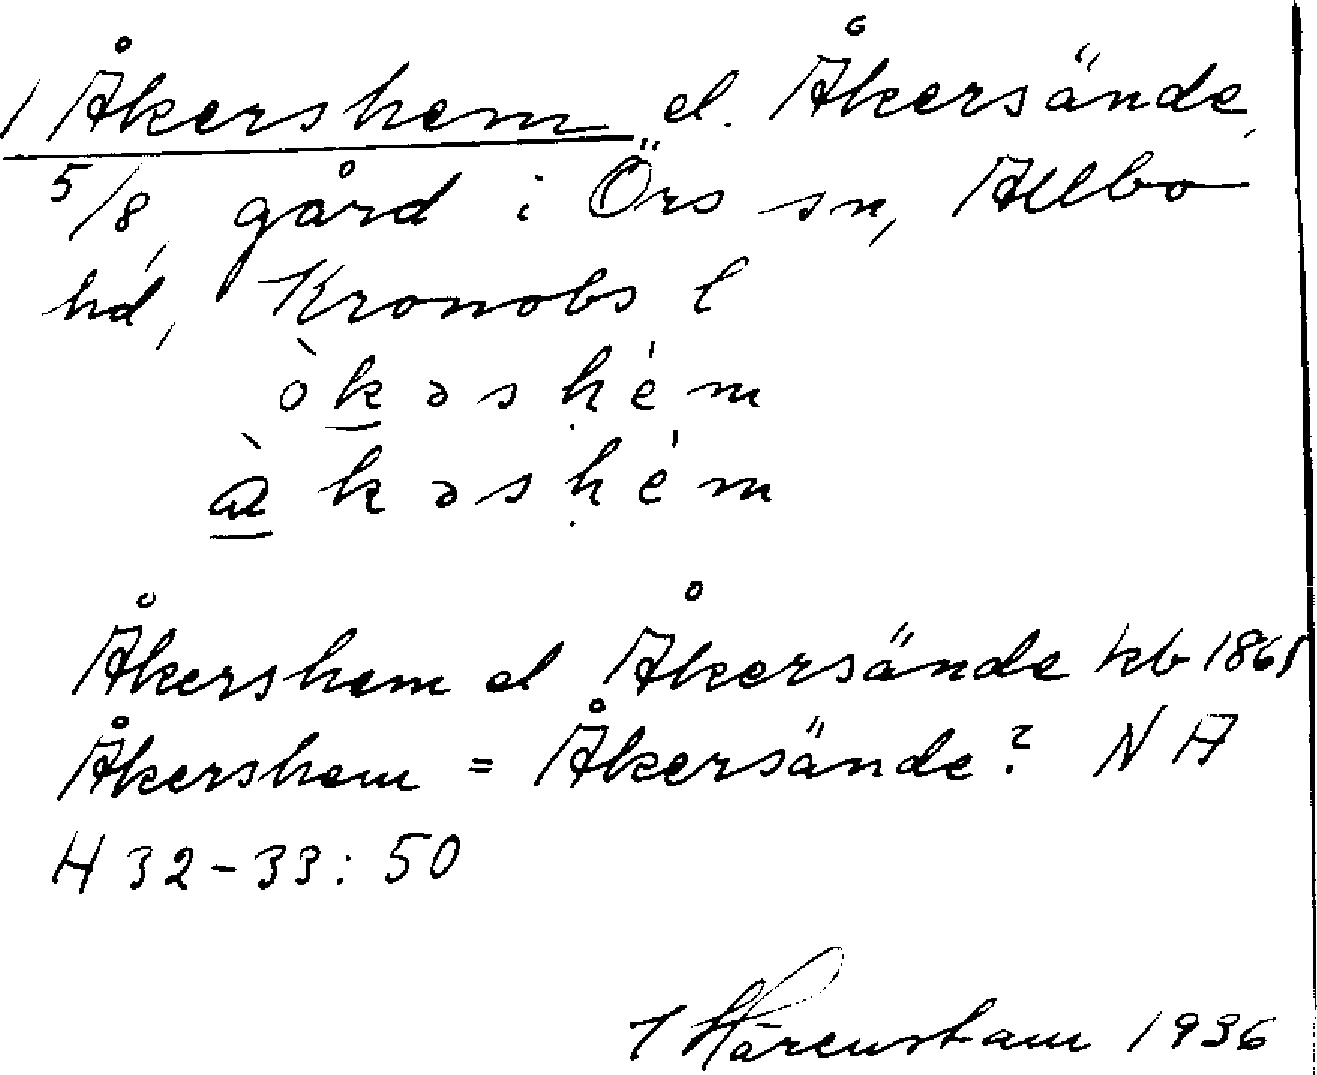 1 Åkershem el. Åkersände,
5/8, gård i Örs sn, Allbo
hd, Kronobs l
òkəsḥém
àkəsḥém
Åkershem el Åkersände kb 1861
Åkershem = Åkersände? NA
H 32-33: 50
Härenstam 1936